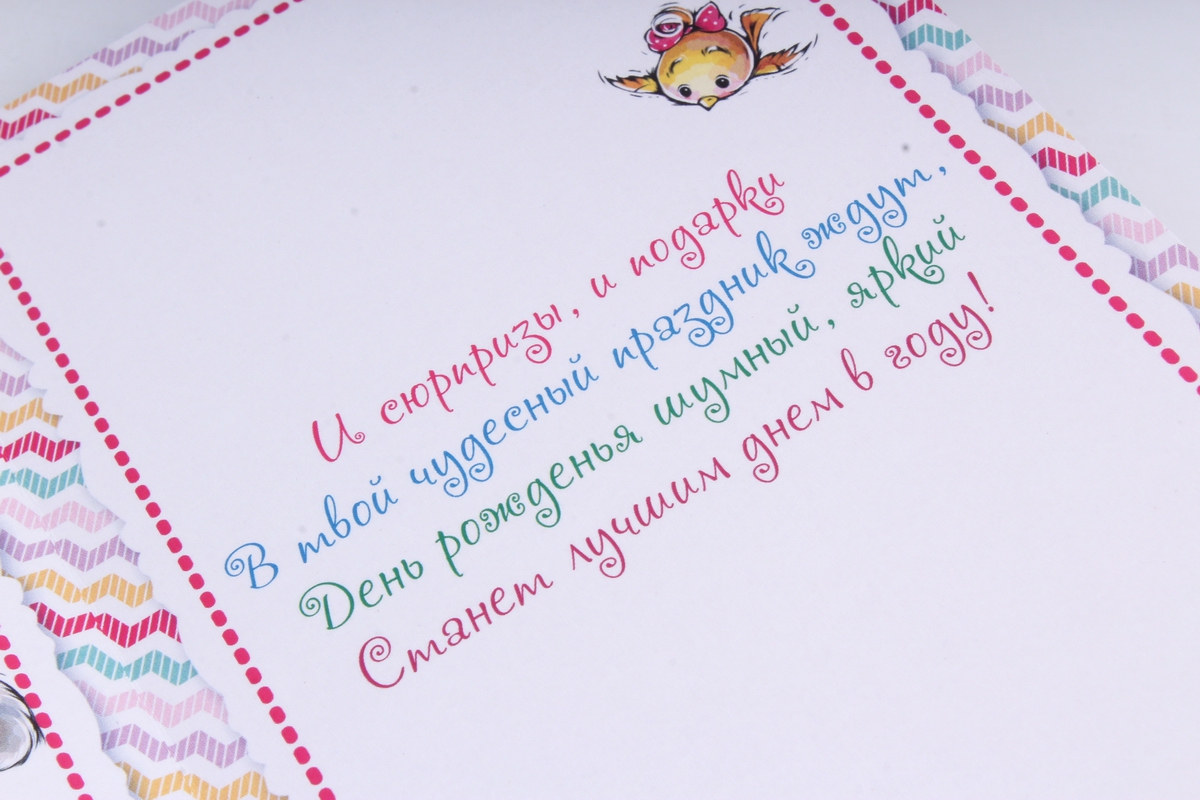 И сюрпризы, и подарки
В твой чудесный праздник ждут,
День рожденья шумный, яркий
Станет лучшим днем в году!